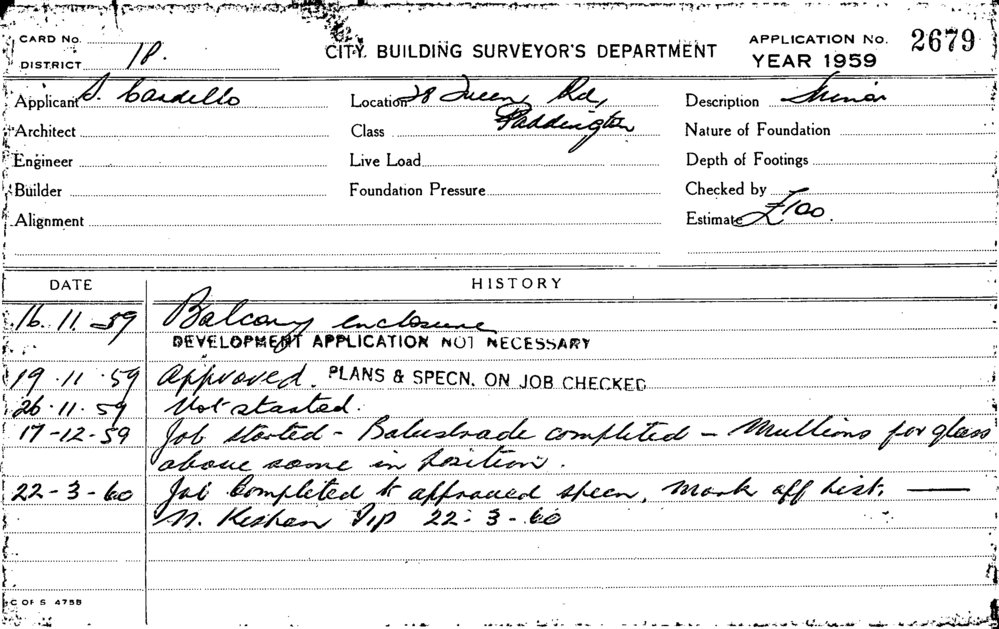 CARD NO.
DISTRICT 18.
CITY BUILDING SURVEYOR'S DEPARTMENT
APPLICATION No. 2679
YEAR 1959
Applicant S. Cardillo
Location 28 Queen Rd,
Paddington
Description Minor
Architect
Class
Nature of Foundation
Engineer
Live Load
Depth of Footings
Builder
Foundation Pressure
Checked by
Alignment
Estimate £100.
DATE HISTORY
16. 11. 59 Balcony enclosure
DEVELOPMENT APPLICATION NOT NECESSARY
19 . 11 . 59 Approved. PLANS & SPECN. ON JOB CHECKED
26. 11. 59 Not started.
17-12-59 Job started - Balustrade completed - Mullions for glass
above same in position.
22-3-60 Job Completed to approved specn, Mark off list.
N. 22-3-60
C OF S 475B